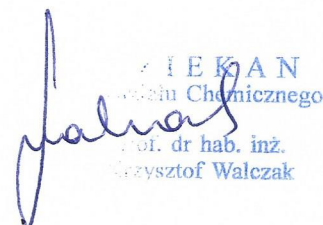 DZIEKAN
Wydziału Chemicznego
Prof. dr hab. inż.
Krzysztof Walczak